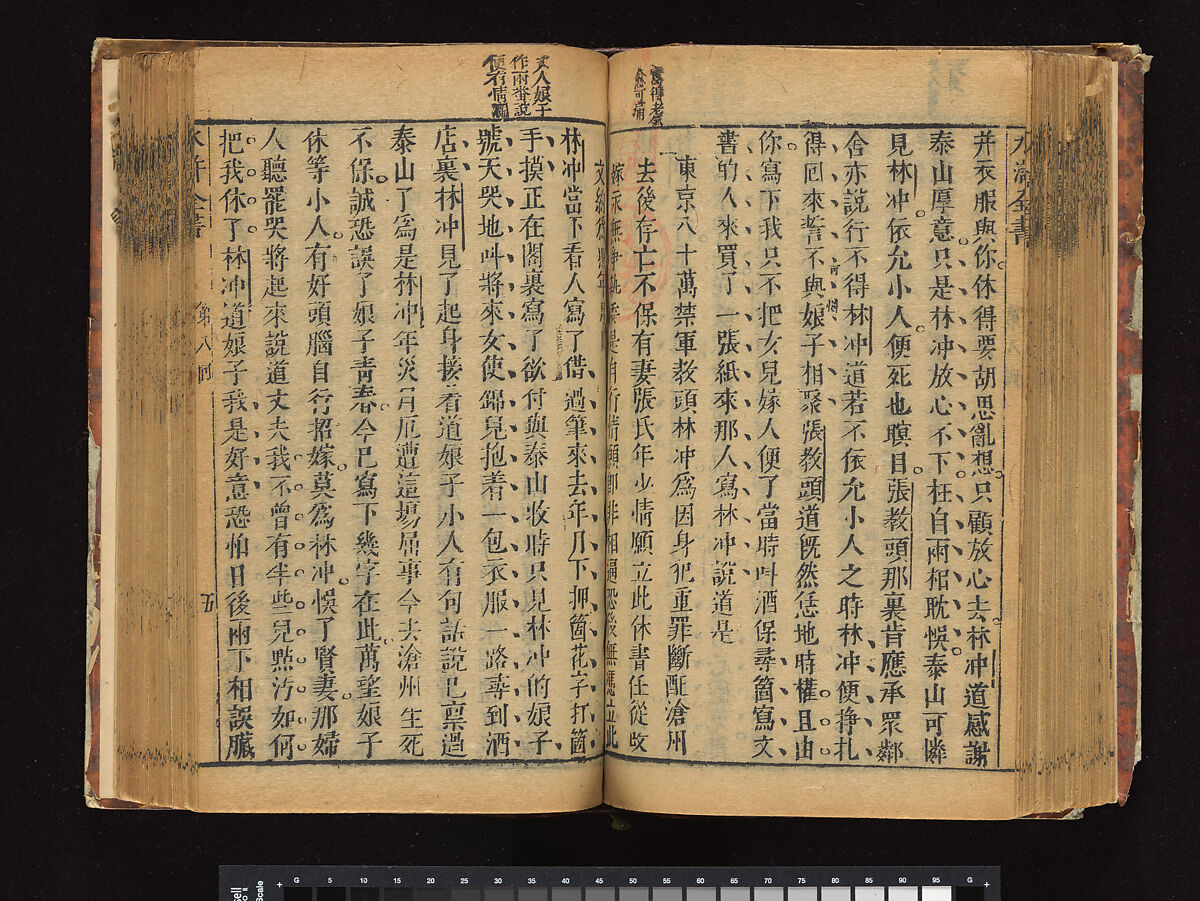 水滸全書
并衣服與你休得要胡思亂想只顧放心去林冲道感謝
泰山厚意只是林冲放心不下枉自兩相耽悞泰山可憐
見林冲依允小人便死也瞑目張教頭那裏肯應承眾鄰
舍亦說行不得林冲道若不依允小人之時林冲便掙扎
得回來誓不與娘子相聚張教頭道既然恁地時權且由
你寫下我只不把女兒嫁人便了當時叫酒保尋箇寫文
書的人來買了一張紙來那人寫林冲說道是
東京八十萬禁軍教頭林冲爲因身犯重罪斷配滄州
去後存亡不保有妻張氏年少情願立此休書任從改
嫁永無爭執委是自行情願即非相逼恐後無憑立此
文約
林冲當下看人寫了借過筆來去年月下押箇花字打箇
手摸正在閣裏寫了欲付與泰山收時只見林冲的娘子
號天哭地叫將來女使錦兒抱着一包衣服一路尋到酒
店裏林冲見了起身接着道娘子小人有句話說已禀過
泰山了爲是林冲年災月厄遭這場屈事今去滄州生死
不保誠恐誤了娘子青春今已寫下幾字在此萬望娘子
休等小人有好頭腦自行招嫁莫爲林冲悞了賢妻那婦
人聽罷哭將起來說道丈夫我不曾有半些兒點污如何
把我休了林冲道娘子我是好意恐怕日後兩下相誤賺
水滸全書
第八回
五
可憐
丈人娘子
作兩番說
便有情
G 5 10 15 20 25 30 35 40 45 50 55 60 65 70 75 80 85 90 95 G